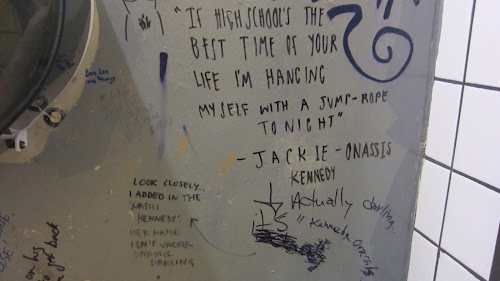 "IF HIGHSCHOOL'S THE
BEST TIME OF YOUR
LIFE I'M HANGING
MYSELF WITH A JUMP-ROPE
TONIGHT"
- JACKIE-ONASSIS
KENNEDY
Actually darling,
its
"Kennedy
LOOK CLOSELY..
I ADDED IN THE
'NASSIS
KENNEDY'
HER NAME
ISN'T JACKIE-
ONASSIS
DARLING
on his
got back